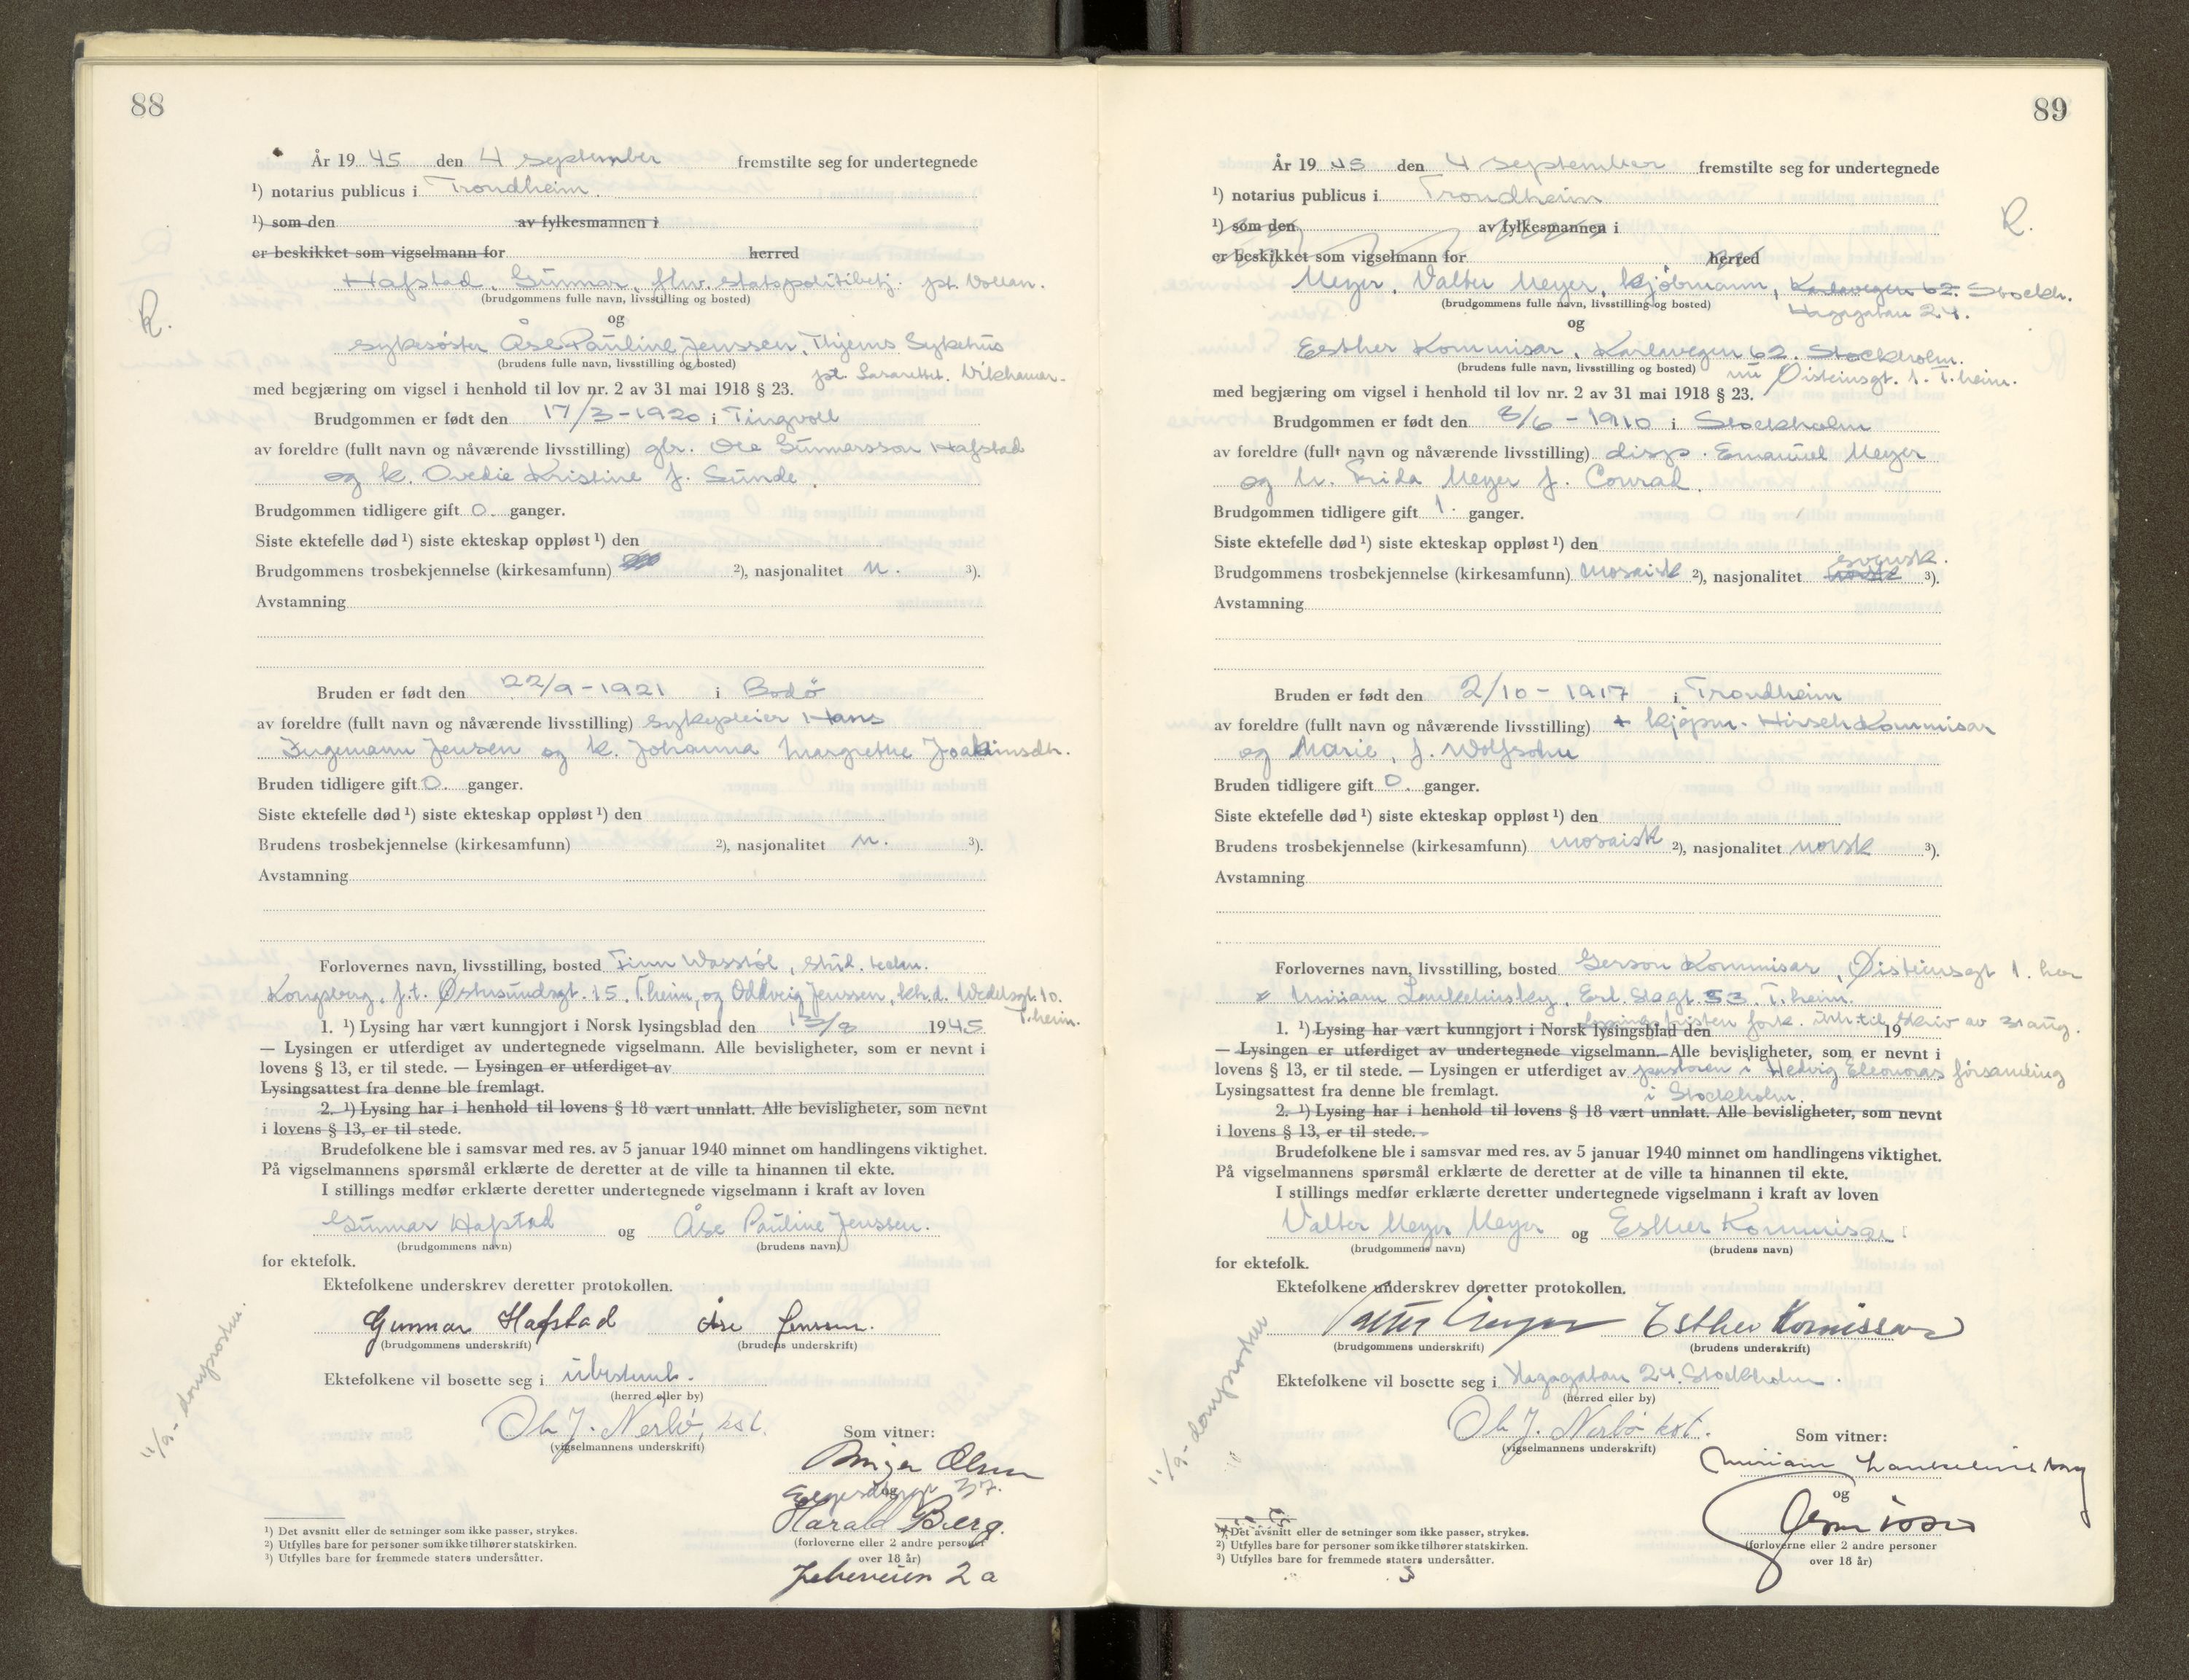 88
År 19 45 den 4 september fremstilte seg for undertegnede
¹) notarius publicus i Trondheim.
¹) som den av fylkesmannen i
er beskikket som vigselmann for herred
Hafstad, Gunnar, fhv. statspolitibetj. pt. Vollan.
(brudgommens fulle navn, livsstilling og bosted)
og
R.
sykesøster Åse Pauline Jenssen, Thjems Sykehus
(brudens fulle navn, livsstilling og bosted)
pt. Lasarettet. Vikhamar.
med begjæring om vigsel i henhold til lov nr. 2 av 31 mai 1918 § 23.
Brudgommen er født den 17/3-1920 i Tingvoll
av foreldre (fullt navn og nåværende livsstilling) gbr. Ole Gunnarsson Hafstad
og k. Ovedie Kristine f. Sunde.
Brudgommen tidligere gift 0. ganger.
Siste ektefelle død ¹) siste ekteskap oppløst ¹) den
Brudgommens trosbekjennelse (kirkesamfunn) ²), nasjonalitet n. ³).
Avstamning
Bruden er født den 22/9-1921 i Bodö
av foreldre (fullt navn og nåværende livsstilling) sykepleier Hans
Ingemann Jensen og k. Johanna Margrethe Joakimsdtr.
Bruden tidligere gift 0. ganger.
Siste ektefelle død ¹) siste ekteskap oppløst ¹) den
Brudens trosbekjennelse (kirkesamfunn) ²), nasjonalitet n. ³).
Avstamning
Forlovernes navn, livsstilling, bosted Finn Wasstøl, stud. techn.
Kongsberg, f.t. Østersundsgt. 15. Theim, og Oddveig Jenssen, Wedelsgt. 10.
T.heim.
1. ¹) Lysing har vært kunngjort i Norsk lysingsblad den 13/8 1945
— Lysingen er utferdiget av undertegnede vigselmann. Alle bevisligheter, som er nevnt i
lovens § 13, er til stede. — Lysingen er utferdiget av
Lysingsattest fra denne ble fremlagt.
2. ¹) Lysing har i henhold til lovens § 18 vært unnlatt. Alle bevisligheter, som nevnt
i lovens § 13, er til stede.
Brudefolkene ble i samsvar med res. av 5 januar 1940 minnet om handlingens viktighet.
På vigselmannens spørsmål erklærte de deretter at de ville ta hinannen til ekte.
I stillings medfør erklærte deretter undertegnede vigselmann i kraft av loven
Gunnar Hafstad og Åse Pauline Jenssen.
(brudgommens navn) (brudens navn)
for ektefolk.
Ektefolkene underskrev deretter protokollen.
Gunnar Hafstad Åse Jenssen.
(brudgommens underskrift) (brudens underskrift)
Ektefolkene vil bosette seg i ubestemt.
(herred eller by)
11/9- domprosten.
Ole J. Nerbö, kst.
(vigselmannens underskrift)
Som vitner:
Birger Olsen
og 37.
Harald Berg.
(forloverne eller 2 andre personer
over 18 år)
2 a
¹) Det avsnitt eller de setninger som ikke passer, strykes.
²) Utfylles bare for personer som ikke tilhører statskirken.
³) Utfylles bare for fremmede staters undersåtter.
89
År 19 45 den 4 september fremstilte seg for undertegnede
¹) notarius publicus i Trondheim
¹) som den av fylkesmannen i
R.
er beskikket som vigselmann for herred
Meyer, Valter Meyer, kjøbmann, Karlavegen 62. Stockh.
(brudgommens fulle navn, livsstilling og bosted) Hagagatan 24.
og
Esther Kommisar, Karlavegen 62. Stockholm.
(brudens fulle navn, livsstilling og bosted) nu Øisteinsgt. 1. T.heim.
med begjæring om vigsel i henhold til lov nr. 2 av 31 mai 1918 § 23.
Brudgommen er født den 3/6-1910 i Stockholm
av foreldre (fullt navn og nåværende livsstilling) disp. Emanuel Meyer
og h. Frida Meyer f. Conrad.
Brudgommen tidligere gift 1. ganger.
Siste ektefelle død ¹) siste ekteskap oppløst ¹) den
svensk.
Brudgommens trosbekjennelse (kirkesamfunn) mosaisk ²), nasjonalitet norsk ³).
Avstamning
Bruden er født den 2/10-1917 i Trondheim
av foreldre (fullt navn og nåværende livsstilling) + kjøpm. Hirsch Kommisar
og Marie, f. Wolfsohn
Bruden tidligere gift 0. ganger.
Siste ektefelle død ¹) siste ekteskap oppløst ¹) den
Brudens trosbekjennelse (kirkesamfunn) mosaisk ²), nasjonalitet norsk ³).
Avstamning
Forlovernes navn, livsstilling, bosted Gerson Kommisar, Øisteinsgt 1. her
Miriam Lankelinsky, Erl. Skagt. 53. T.heim.
lysingsfristen fork. skriv av 31 aug.
1. ¹) Lysing har vært kunngjort i Norsk lysingsblad den 19
— Lysingen er utferdiget av undertegnede vigselmann. Alle bevisligheter, som er nevnt i
lovens § 13, er til stede. — Lysingen er utferdiget av pastoren i Hedvig Eleonoras församling
Lysingsattest fra denne ble fremlagt. i Stockholm.
2. ¹) Lysing har i henhold til lovens § 18 vært unnlatt. Alle bevisligheter, som nevnt
i lovens § 13, er til stede.
Brudefolkene ble i samsvar med res. av 5 januar 1940 minnet om handlingens viktighet.
På vigselmannens spørsmål erklærte de deretter at de ville ta hinannen til ekte.
I stillings medfør erklærte deretter undertegnede vigselmann i kraft av loven
Valter Meyer Meyer og Esther Kommisar.
(brudgommens navn) (brudens navn)
for ektefolk.
Ektefolkene underskrev deretter protokollen.
Valter Meyer Esther Komissar
(brudgommens underskrift) (brudens underskrift)
Ektefolkene vil bosette seg i Hagagatan 24. Stockholm.
(herred eller by)
11/9- domprosten
Ole J. Nerbö kst.
(vigselmannens underskrift)
Som vitner:
Miriam Lankelinsky
og
(forloverne eller 2 andre personer
over 18 år)
¹) Det avsnitt eller de setninger som ikke passer, strykes.
²) Utfylles bare for personer som ikke tilhører statskirken.
³) Utfylles bare for fremmede staters undersåtter.